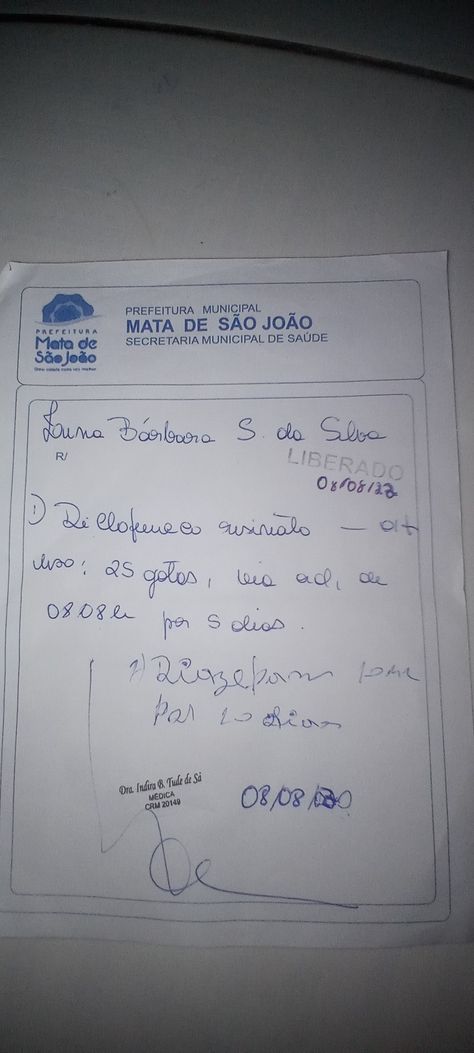 PREFEITURA
Mata de
São João
PREFEITURA MUNICIPAL
MATA DE SÃO JOÃO
SECRETARIA MUNICIPAL DE SAÚDE
Bárbara S. da Silva
R/
LIBERADO
08/08/22
1) Diclofenaco
uso: 25 gotas, via de
08.08h por 5 dias.
1) Diazepam
por dias
Dra. Indira B. Tude de Sá
MÉDICA
CRM 20149
08/08/